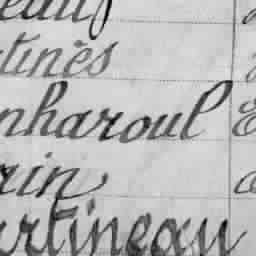 eau
tinès
nharoul
rin
artineau